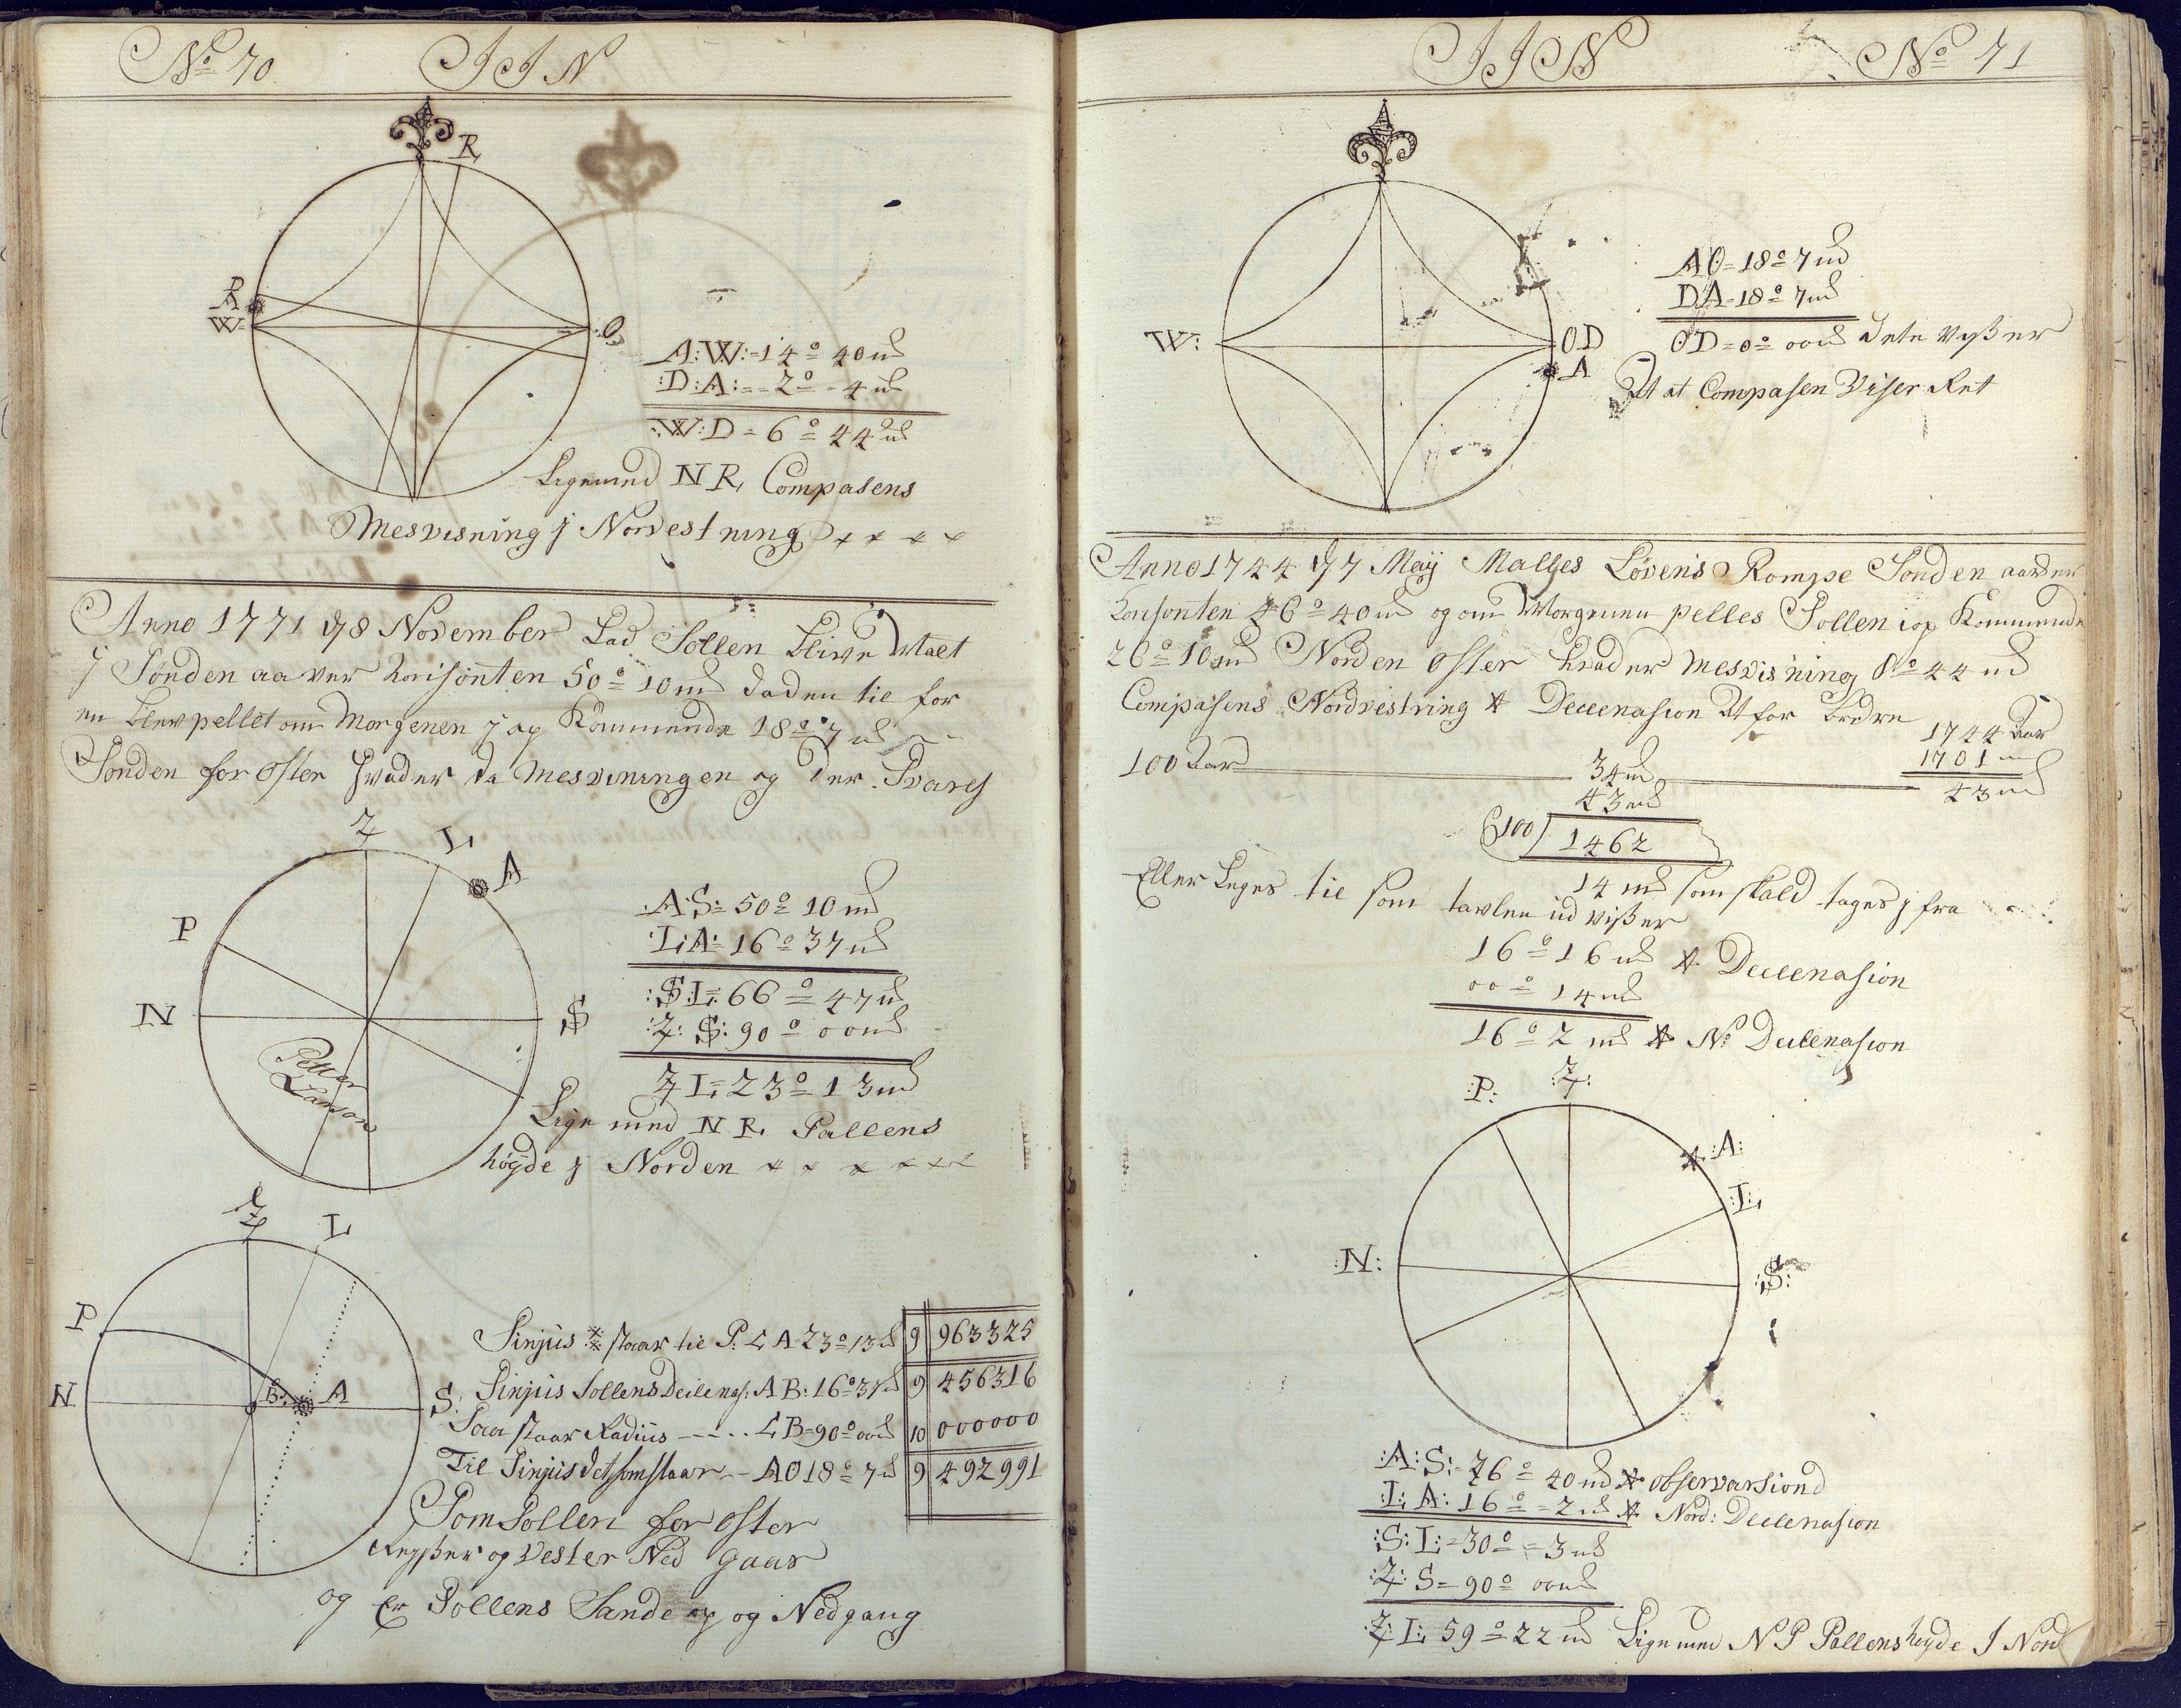 No 70 J J N
R
R
A
W
O
A:W:=14° 40 m
:D:A:=-2°-4 m
W:D=6° 44 m
Ligemed NR, Compasens
Mesvisning j Norvestning
Anno 1771 d 8 November Lad Sollen blive Maalt
j Sønden aaver horisonten 50° 10 m
en blev pellet om Morgenen j op Kommende 18° 7 m
Sønden for Osten hvad er da Mesviningen og der Svares
Z L A
P
N S
Petter
Larson
A:S: 50° 10 m
L:A: 16° 37 m
:S:L: 66° 47 m
:Z:S: 90° 00 m
Z L: 23° 13 m
Lige med N P. Pollens
høyde j Norden
Z L
P
N B: A S:
Sinjus staar til P. L A 23° 13 m 9 963325
Sinjus Sollens Declenas: A B: 16° 37 m 9 456316
Saa staar Radius ---- L B=90° 00 m 10 000000
Til Sinjus det som staar -- AO 18° 7 m 9 492991
Som Sollen for Oster
Reyser og Vester Ned gaar
og er Sollens Sande op og Nedgang
J J N No 71
W: OD
A
AO=18° 7 m
DA=18° 7 m
OD=0° 00 m dete Vyser
At at Compasen Viser Ret
Anno 1744 d 7 Maij Malles Løvens Rompe Sønden aaver
horisonten 46° 40 m og om Morgenen pelles Sollen i op Kommende
26° 10 m Norden Oster hvad er Mesvisning 8° 44 m
Compasens Nordvestring Declenasion At for bedre
1744 Aar
1701
100 Aar 34 m 43 m
43 m
100 1462
14 m som skald tages j fra
Eller Leges til som tavlen ud viser
16° 16 m Declenasion
00° 14 m
16° 2 m No Declenasion
:P: :Z:
:A:
:L:
:N: :S:
:A:S:=46° 40 m observarsion
:L:A: 16°=2 m Nord: Declenasion
:S:L:=30°=3 m
:Z:S=90° 00 m
:Z:L: 59° 22 m Lige med N P Pollens høyde J Nord